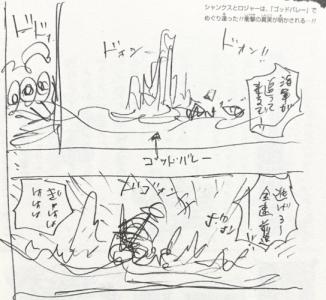 シャンクスとロジャーは、「ゴッドバレー」で
めぐり逢った!!衝撃の真実が明かされる…!!
ドォン!!
ドォン
ドォ
海軍が
追って
来るぞー!
ゴッドバレー
逃げろー
全速前進
ドゴォン
ぎゃはは
ははは